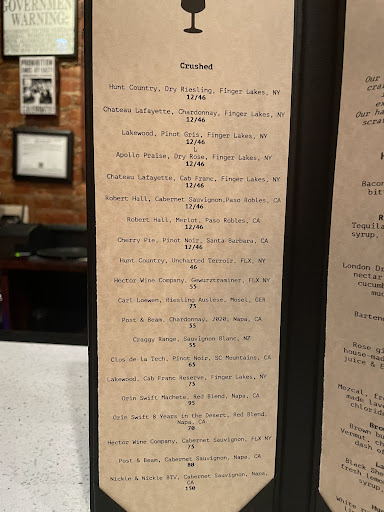 GOVERNMENT
WARNING:
PROHIBITION
ENDS AT LAST!
Crushed
Hunt Country, Dry Riesling, Finger Lakes, NY
12/46
Chateau Lafayette, Chardonnay, Finger Lakes, NY
12/46
Lakewood, Pinot Gris, Finger Lakes, NY
12/46
L
Apollo Praise, Dry Rose, Finger Lakes, NY
12/46
Chateau Lafayette, Cab Franc, Finger Lakes, NY
12/46
Robert Hall, Cabernet Sauvignon,Paso Robles, CA
12/46
Robert Hall, Merlot, Paso Robles, CA
12/46
Cherry Pie, Pinot Noir, Santa Barbara, CA
12/46
Hunt Country, Uncharted Terroir, FLX, NY
46
Hector Wine Company, Gewurztraminer, FLX NY
55
Carl Loewen, Riesling Auslese, Mosel, GER
75
Post & Beam, Chardonnay, 2020, Napa, CA
55
Craggy Range, Sauvignon Blanc, NZ
55
Clos de la Tech, Pinot Noir, SC Mountains, CA
65
Lakewood, Cab Franc Reserve, Finger Lakes, NY
75
Orin Swift Machete, Red Blend, Napa, CA
95
Orin Swift 8 Years in the Desert, Red Blend,
Napa, CA
70
Hector Wine Company, Cabernet Sauvignon, FLX NY
75
Post & Beam, Cabernet Sauvignon, Napa, CA
80
Nickle & Nickle BTV, Cabernet Sauvignon, Napa,
CA
150
Our
Our ha
scra
Bacon
bitt
Tequila
syrup,
London Dr
nectar
cucumb
Bartend
Rose gi
house-mad
juice & E
Mezcal, fr
made lave
chlorid
Brown bu
vermut, ch
dash of
Black She
fresh lemo
syrup,
White r